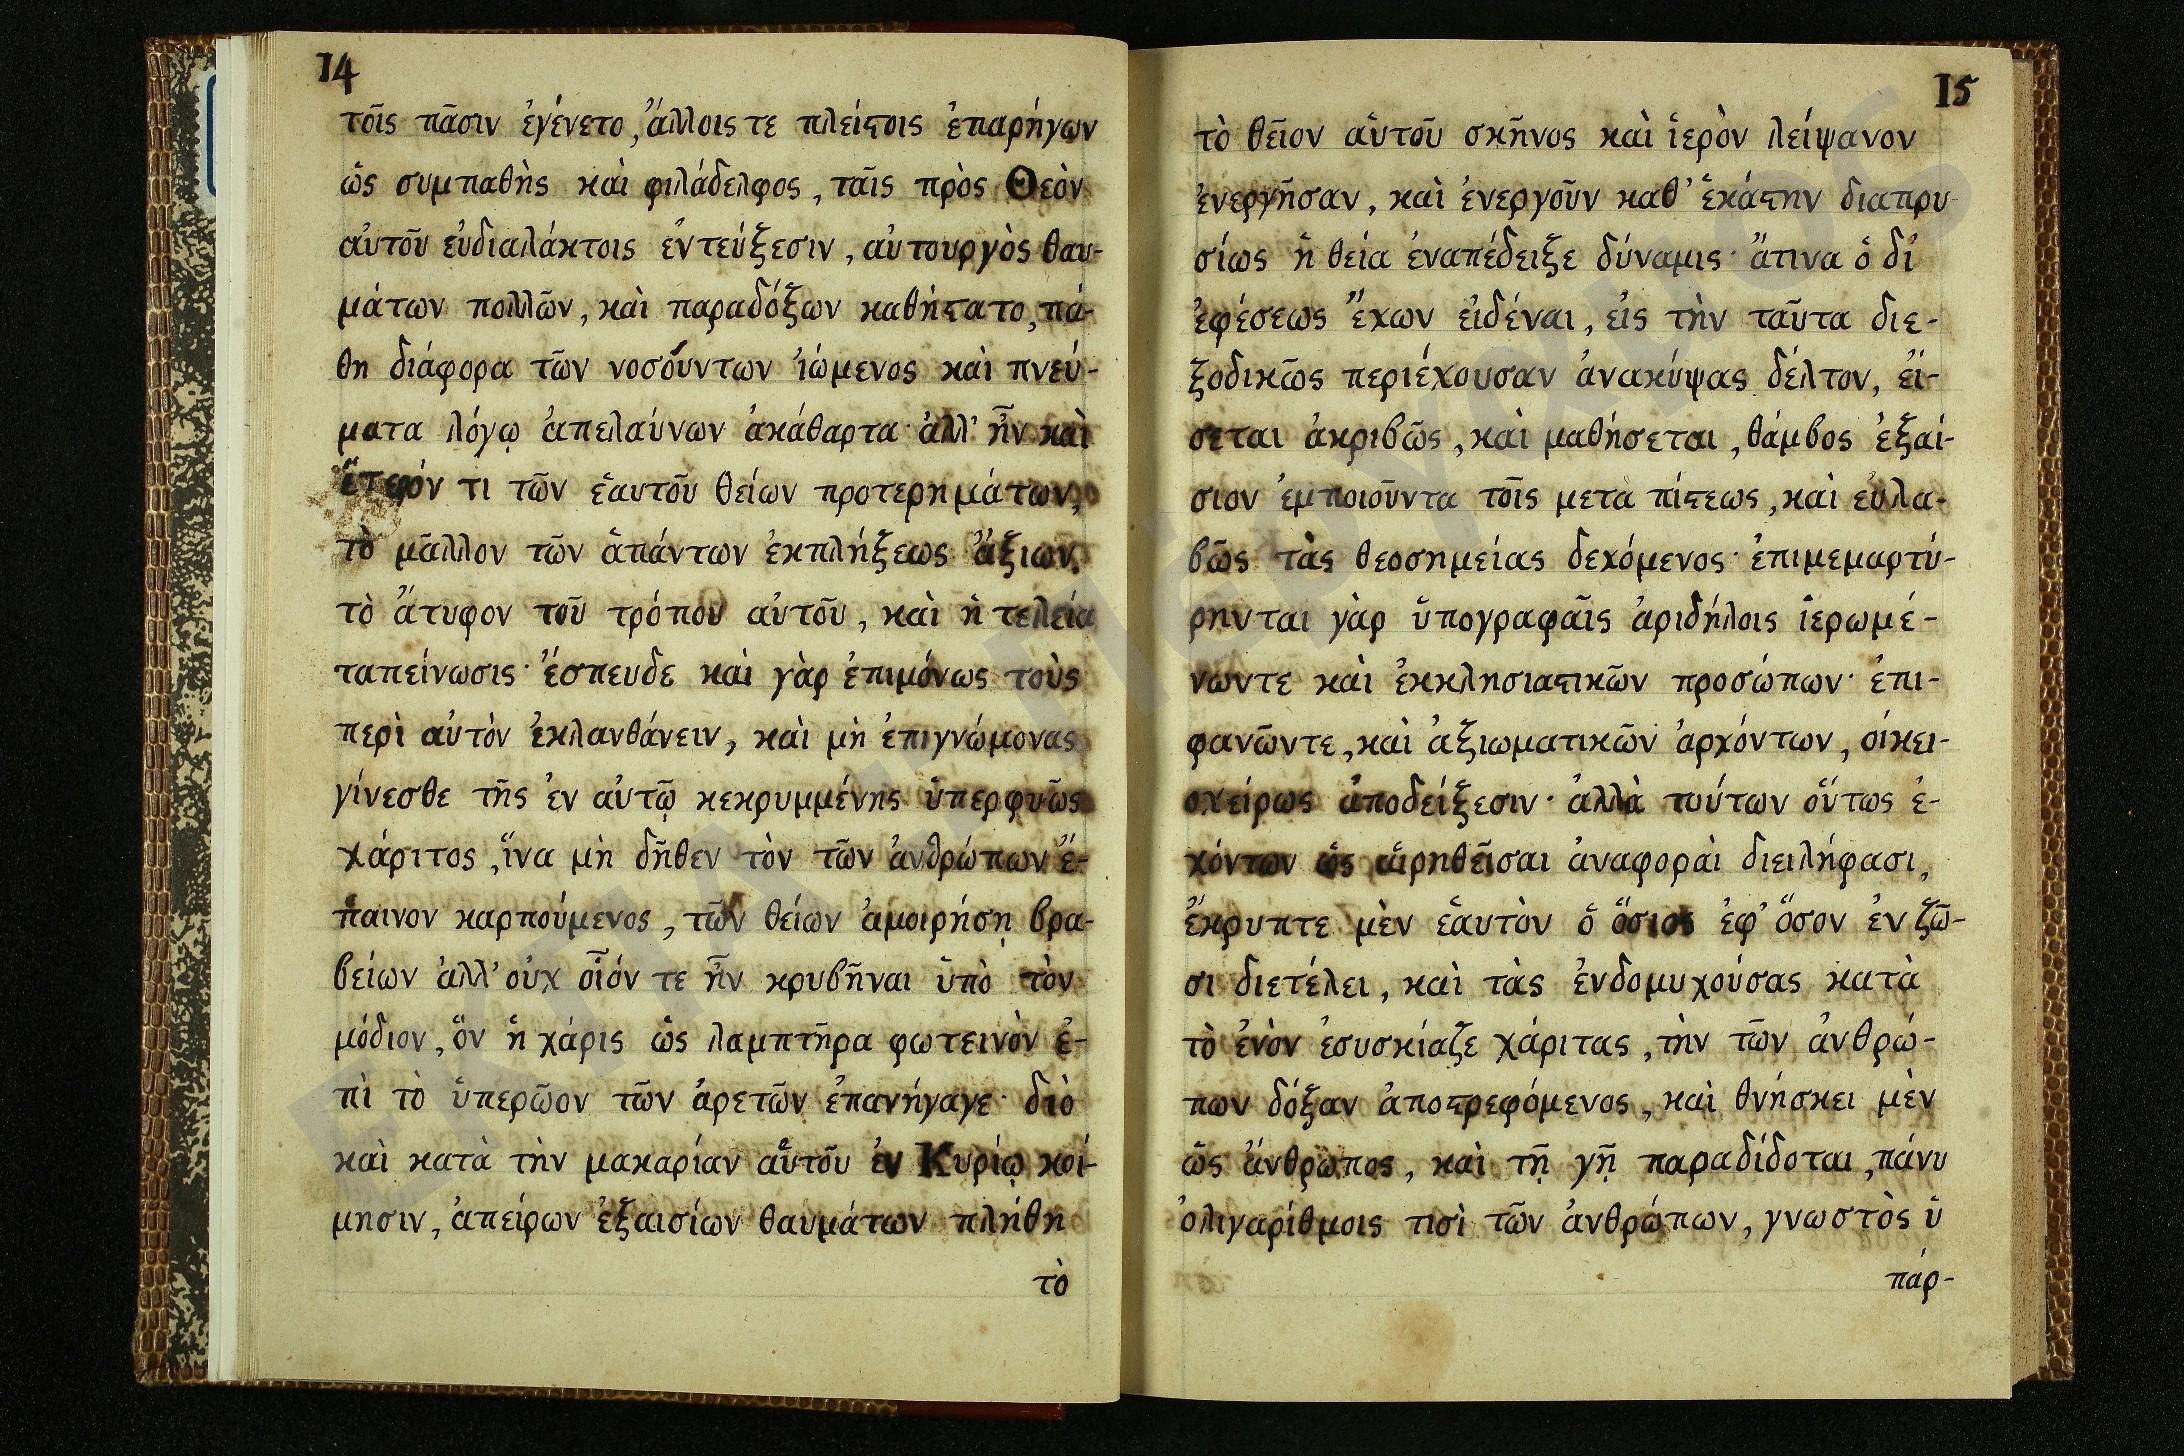 14
τοῖς πᾶσιν ἐγένετο, ἄλλοις τε πλείϛοις ἐπαρήγων
ὡς συμπαθὴς καὶ φιλάδελφος, ταῖς πρὸς Θεὸν
αὐτοῦ εὐδιαλάκτοις ἐντεύξεσιν, αὐτουργὸς θαυ-
μάτων πολλῶν, καὶ παραδόξων καθήϛατο, πά-
θη διάφορα τῶν νοσούντων ἰώμενος καὶ πνεύ-
ματα λόγῳ ἀπελαύνων ἀκάθαρτα· ἀλλ' ἦν καὶ
ἕτερόν τι τῶν ἑαυτοῦ θείων προτερημάτων,
τὸ μᾶλλον τῶν ἁπάντων ἐκπλήξεως ἄξιων,
τὸ ἄτυφον τοῦ τρόπου αὐτοῦ, καὶ ἡ τελεία
ταπείνωσις· ἔσπευδε καὶ γὰρ ἐπιμόνως τοὺς
περὶ αὐτὸν ἐκλανθάνειν, καὶ μὴ ἐπιγνώμονας
γίνεσθε τῆς ἐν αὐτῷ κεκρυμμένης ὑπερφυῶς
χάριτος, ἵνα μὴ δῆθεν τὸν τῶν ἀνθρώπων ἔ-
παινον καρπούμενος, τῶν θείων ἀμοιρήσῃ βρα-
βείων ἀλλ' οὐχ οἷόν τε ἦν κρυβῆναι ὑπὸ τὸν
μόδιον, ὅν ἡ χάρις ὡς λαμπτῆρα φωτεινὸν ἐ-
πὶ τὸ ὑπερῶον τῶν ἀρετῶν ἐπανήγαγε· διὸ
καὶ κατὰ τὴν μακαρίαν αὑτοῦ ἐν Κυρίῳ κοί-
μησιν, ἀπείρων ἐξαισίων θαυμάτων πλήθη
τὸ
15
τὸ θεῖον αὑτοῦ σκῆνος καὶ ἱερὸν λείψανον
ἐνεργῆσαν, καὶ ἐνεργοῦν καθ' ἑκάϛην διαπρυ
σίως ἡ θεία ἐναπέδειξε δύναμις· ἅτινα ὁ δι'
ἐφέσεως ἔχων εἰδέναι, εἰς τὴν ταῦτα διε-
ξοδικῶς περιέχουσαν ἀνακύψας δέλτον, εἴ-
σεται ἀκριβῶς, καὶ μαθήσεται, θάμβος ἐξαί-
σιον ἐμποιοῦντα τοῖς μετὰ πίϛεως, καὶ εὐλα-
βῶς τὰς θεοσημείας δεχόμενος· ἐπιμεμαρτύ-
ρηνται γὰρ ὑπογραφαῖς ἀριδήλοις ἱερωμέ-
νωντε καὶ ἐκκλησιαϛικῶν προσώπων· ἐπι-
φανῶντε, καὶ ἀξιωματικῶν ἀρχόντων, οἰκει-
οχείρως ἀποδείξεσιν· ἀλλὰ τούτων οὕτως ἐ-
χόντων ὡς αἱρηθεῖσαι ἀναφοραὶ διειλήφασι,
ἔκρυπτε μὲν ἑαυτὸν ὁ ὅσιος ἐφ' ὅσον ἐν ζῶ-
σι διετέλει, καὶ τὰς ἐνδομυχούσας κατὰ
τὸ ἐνὸν ἐσυσκίαζε χάριτας, τὴν τῶν ἀνθρώ-
πων δόξαν ἀποϛρεφόμενος, καὶ θνήσκει μὲν
ὡς ἄνθρωπος, καὶ τῇ γῇ παραδίδοται, πάνυ
ὀλιγαρίθμοις τισὶ τῶν ἀνθρώπων, γνωστὸς ὑ
πάρ-